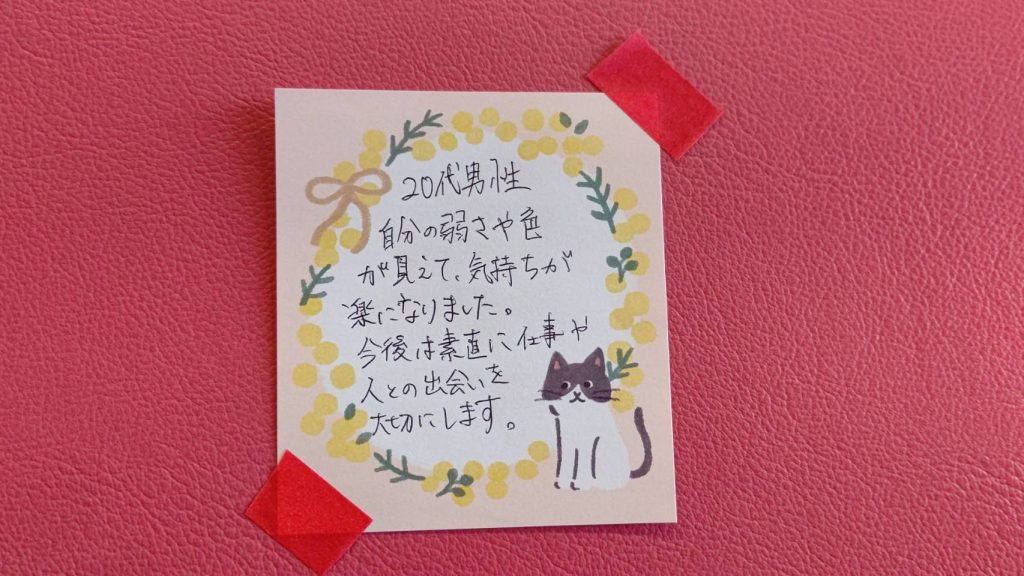 20代男性
自分の弱さや色
が見えて、気持ちが
楽になりました。
今後は素直に仕事や
人との出会いを
大切にします。